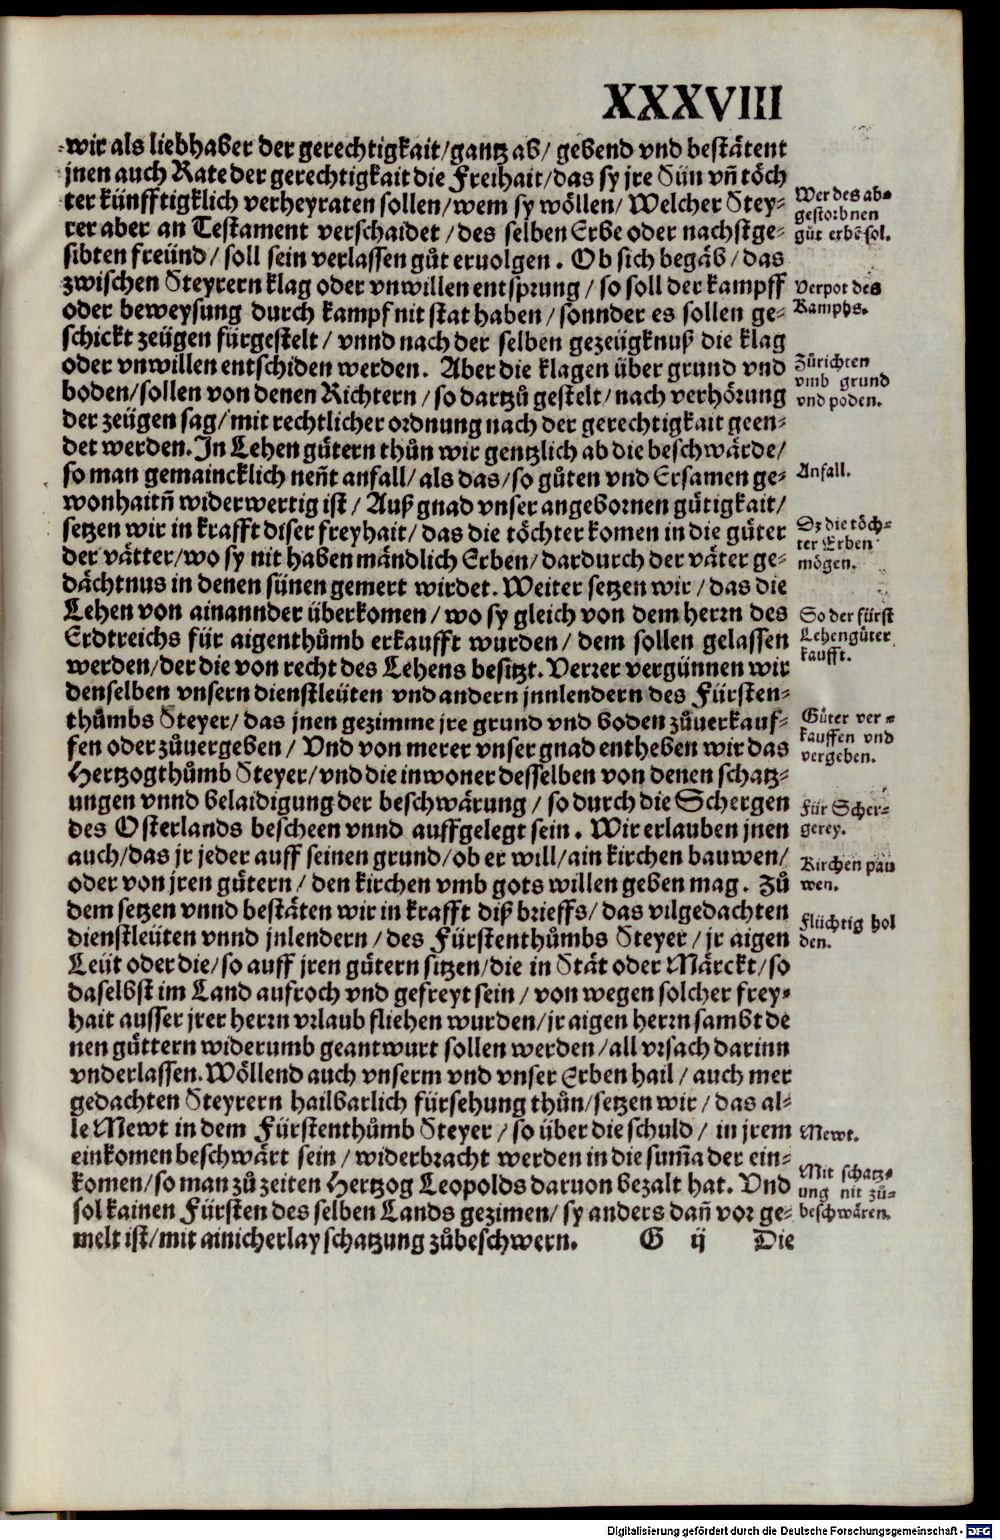 XXXVIII
wir als liebhaber der gerechtigkait/gantz ab/ gebend vnd bestätent
jnen auch Rate der gerechtigkait die Freihait/das sy jre Sün vn̄ töch
ter künfftigklich verheyraten sollen/wem sy wöllen/ Welcher Stey-
rer aber an Testament verschaidet /des selben Erbe oder nachstge-
sibten freünd/ soll sein verlassen gůt eruolgen. Ob sich begäb/das
zwischen Steyrern klag oder vnwillen entsprung/ so soll der kampff
oder beweysung durch kampf nit stat haben/ sonnder es sollen ge-
schickt zeügen fürgestelt/ vnnd nach der selben gezeügknuß die klag
oder vnwillen entschiden werden. Aber die klagen über grund vnd
boden/sollen von denen Richtern/so dartzů gestelt/nach verhörung
der zeügen sag/mit rechtlicher ordnung nach der gerechtigkait geen-
det werden. In Lehen gütern thůn wir gentzlich ab die beschwärde/
so man gemaincklich nen̄t anfall/als das/so gůten vnd Ersamen ge-
wonhaitn̄ widerwertig ist/ Auß gnad vnser angebornen gütigkait/
setzen wir in krafft diser freyhait/das die töchter komen in die güter
der vätter/wo sy nit haben mändlich Erben/dardurch der väter ge-
dächtnus in denen sünen gemert wirdet. Weiter setzen wir/das die
Lehen von ainannder überkomen/wo sy gleich von dem herrn des
Erdtreichs für aigenthůmb erkaufft wurden/dem sollen gelassen
werden/der die von recht des Lehens besitzt. Verrer vergünnen wir
denselben vnsern dienstleüten vnd andern jnnlendern des Fürsten-
thůmbs Steyer/das jnen gezimme jre grund vnd boden zůuerkauf-
fen oder zůuergeben/ Vnd von merer vnser gnad entheben wir das
Hertzogthůmb Steyer/vnd die inwoner desselben von denen schatz-
ungen vnnd belaidigung der beschwärung/so durch die Schergen
des Osterlands bescheen vnnd auffgelegt sein. Wir erlauben jnen
auch/das jr jeder auff seinen grund/ob er will/ain kirchen bauwen/
oder von jren gütern/den kirchen vmb gots willen geben mag. Zů
dem setzen vnnd bestäten wir in krafft diß brieffs/das vilgedachten
dienstleüten vnnd jnlendern/des Fürstenthůmbs Steyer/jr aigen
Leüt oder die/so auff jren gütern sitzen/die in Stät oder Märckt/so
daselbst im Land aufroch vnd gefreyt sein/von wegen solcher frey-
hait ausser jrer herrn vrlaub fliehen wurden/jr aigen herrn sambt de
nen güttern widerumb geantwurt sollen werden/all vrsach darinn
vnderlassen. Wöllend auch vnserm vnd vnser Erben hail/auch mer
gedachten Steyrern hailbarlich fürsehung thůn/setzen wir/das al-
le Mewt in dem Fürstenthůmb Steyer/so über die schuld/in jrem
einkomen beschwärt sein/widerbracht werden in die sum̄a der ein-
komen/so man zů zeiten Hertzog Leopolds daruon bezalt hat. Vnd
sol kainen Fürsten des selben Lands gezimen/sy anders dan̄ vor ge-
melt ist/mit ainicherlay schatzung zůbeschwern. G ij Die
Wer des ab-
gestorbnen
gůt erbē sol.
Verpot des
Kamphs.
Zůrichten
vmb grund
vnd poden.
Anfall.
Dz die töch-
ter Erben
mögen.
So der fürst
Lehengüter
kaufft.
Güter ver-
kauffen vnd
vergeben.
Für Scher-
gerey.
Kirchen pau
wen.
Flüchtig hol
den.
Mewt.
Mit schatz-
ung nit zů-
beschwären.
Digitalisierung gefördert durch die Deutsche Forschungsgemeinschaft - DFG